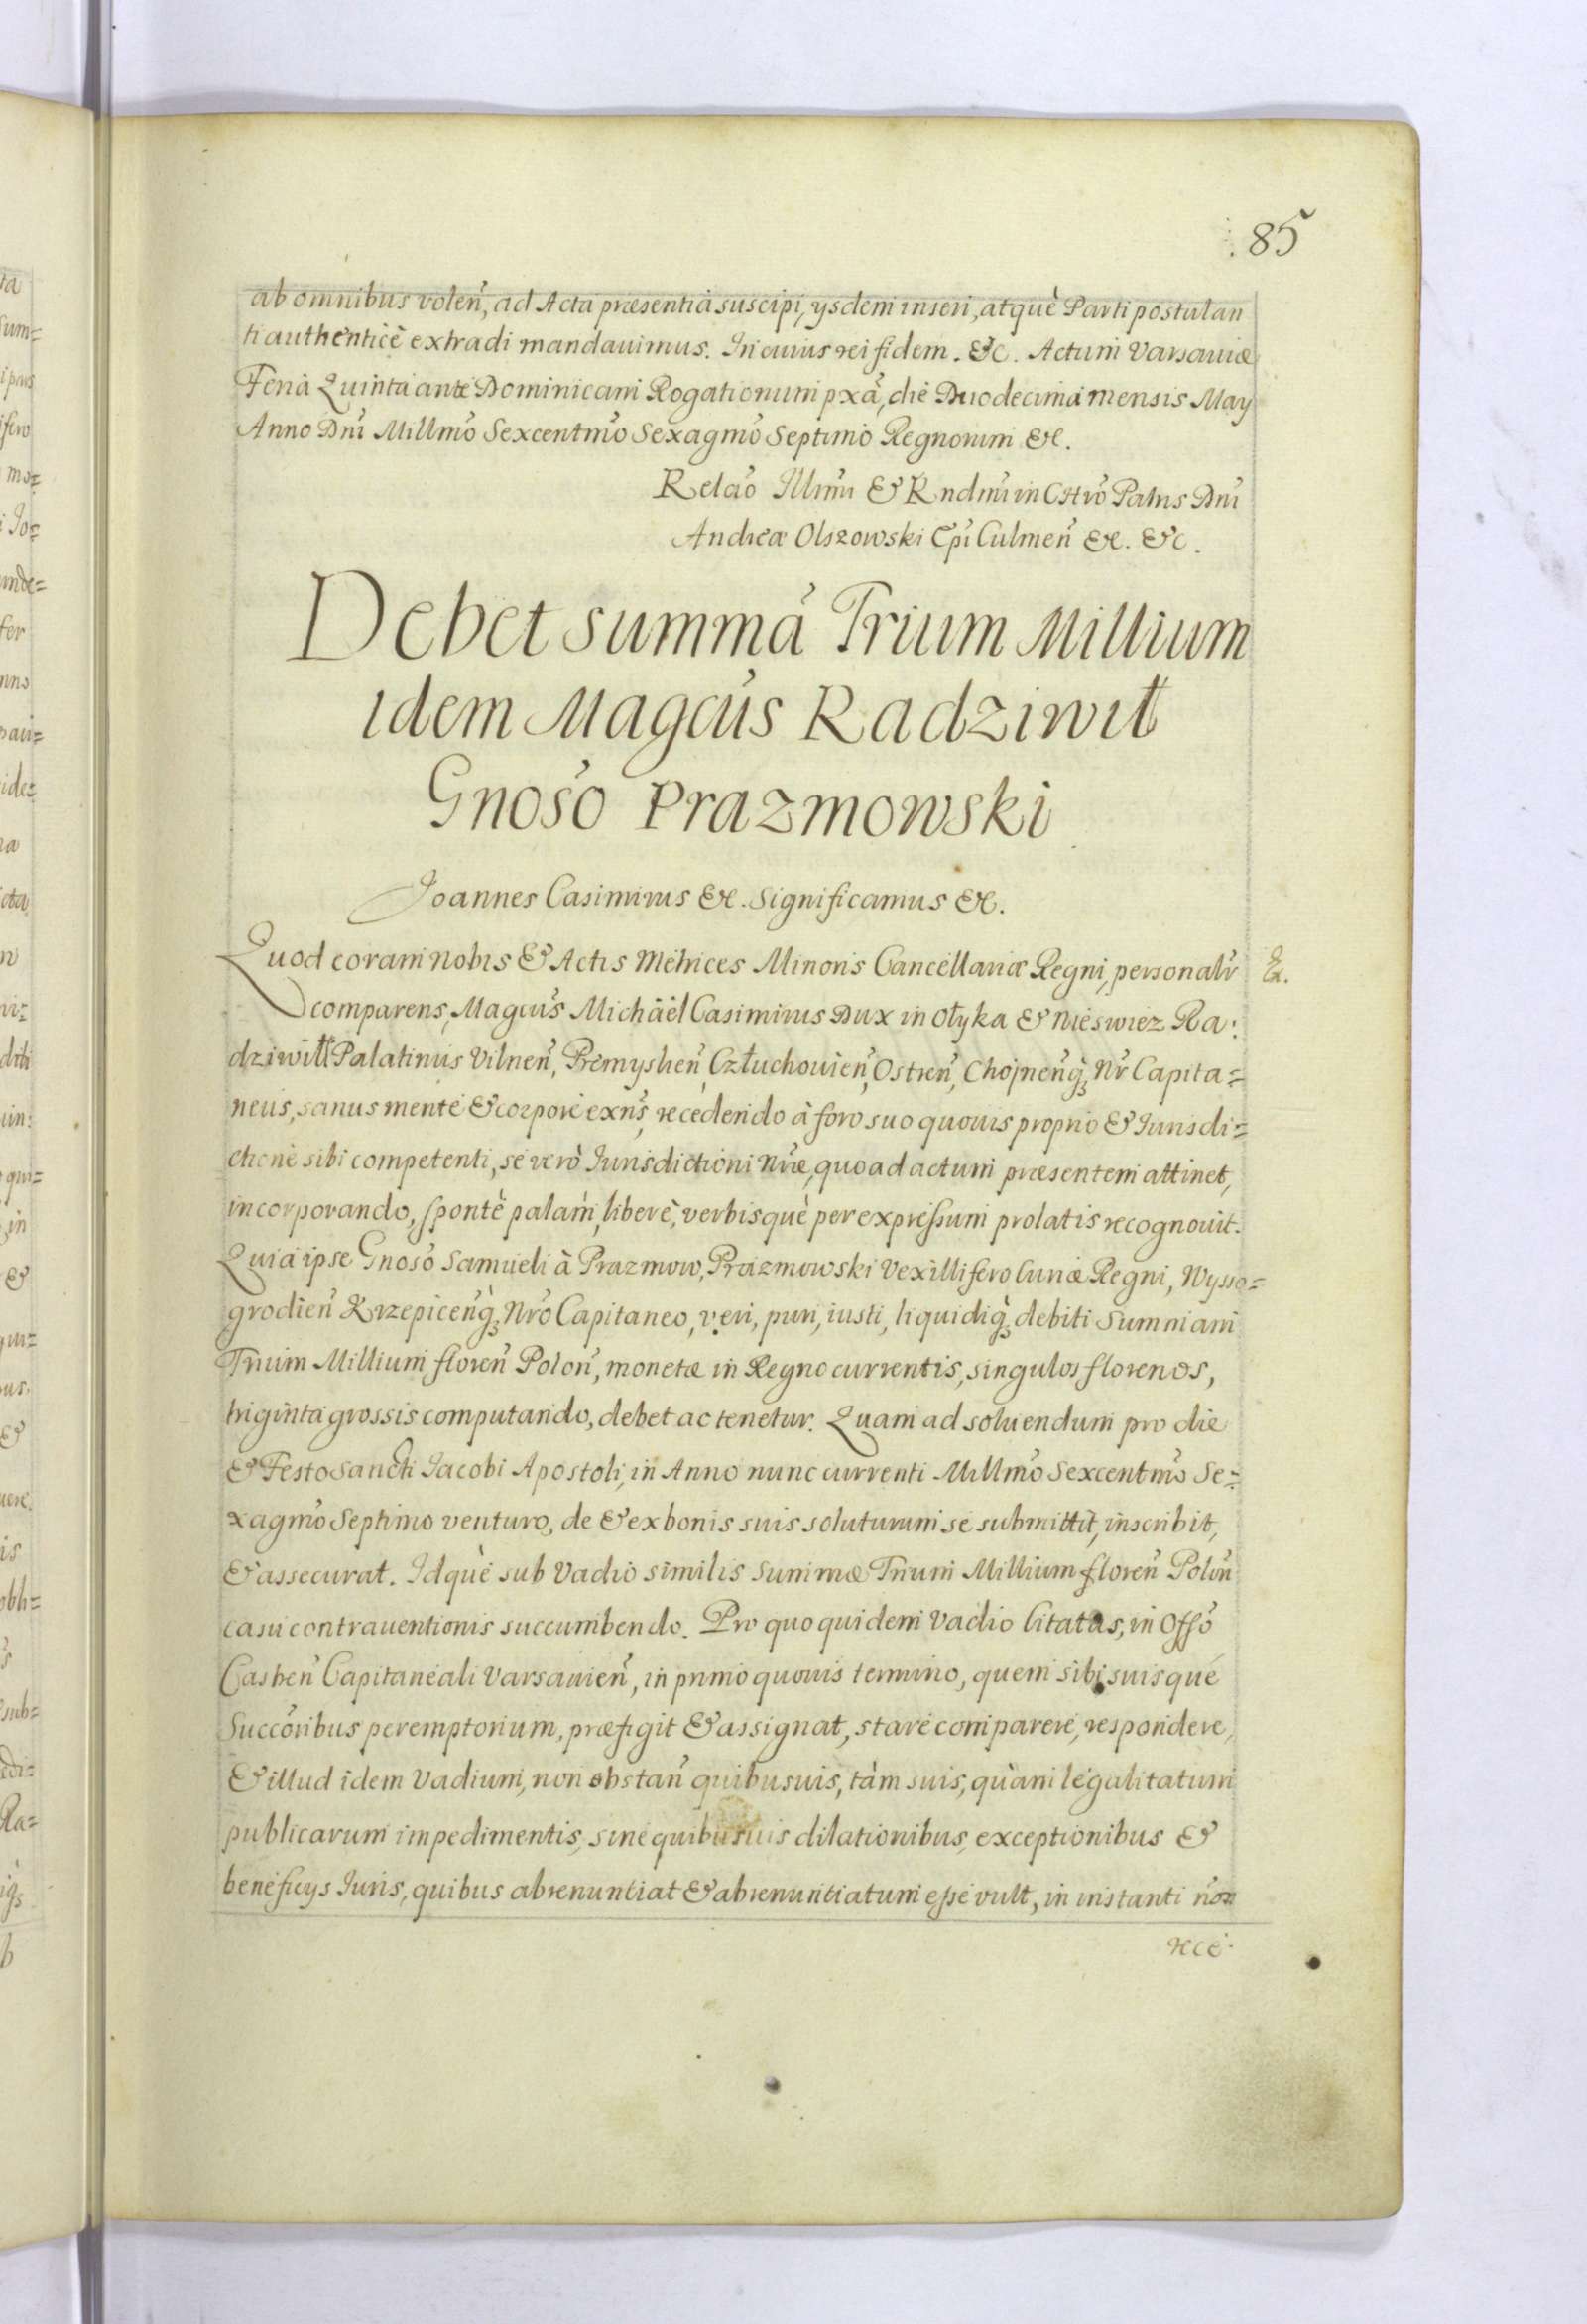 85
ab omnibus voleñ, ad Acta præsentia suscipi, ysdem inseri, atquè Parti postulan
ti authenticè extradi mandauimus. In cuius rei fidem. &c. Actum Varsauiæ
Feria Quinta ante Dominicam Rogationum pxã, die Duodecima mensis May
Anno Dnĩ Millm̃o Sexcentm̃o Sexagm̃o Septimo Regnorum &c.
Relaõ Illmĩ & Rndmĩ in Chr̃o Patris Dnĩ
Andreæ Olszowski Ep̃i Culmeñ &c. &c.
Debet summã Trium Millium
idem Magcũs Radziwił
Gnosõ Prazmowski
Joannes Casimirus &c. Significamus &c.
Quod coram nobis & Actis Metrices Minoris Cancellariæ Regni, personalr̃
comparens, Magcũs Michäel Casimirus Dux in Ołyka & Nieswiez Ra:
dziwiłł Palatinus Vilneñ, Præmyslieñ, Człuchouieñ, Ostreñ, Chojneñq̃ȝ Nr̃ Capita=
neus, sanus mente & corpore exñs, recedendo à foro suo quouis proprio & Iurisdi=
ctione sibi competenti, se verò Iurisdictioni Nr̃æ, quo ad actum præsentem attinet,
incorporando, spontè palam, liberè, verbisquè per expressum prolatis recognouit.
Quia ipse Gnosõ Samueli à Prazmow, Prazmowski Vexillifero Curiæ Regni, Wysso=
grodieñ Krzepiceñq̃ȝ Nr̃o Capitaneo, veri, puri, iusti, liquidiq̀ȝ debiti Summam
Trium Millium floreñ Poloñ, monetæ in Regno currentis, singulos florenos,
triginta grossis computando, debet ac tenetur. Quam ad soluendum pro die
& Festo Sancti Jacobi Apostoli, in Anno nunc currenti Millm̃o Sexcentm̃o Se=
xagm̃o Septimo venturo, de & ex bonis suis soluturum se submittit, inscribit,
& assecurat. Idquè sub Vadio similis Summæ Trium Millium floreñ Poloñ
casu contrauentionis succumbendo. Pro quo quidem Vadio citatus, in Offõ
Castreñ Capitaneali Varsauieñ, in primo quouis termino, quem sibi suisquè
Succõribus peremptorium, præfigit & assignat, stare comparere, respondere,
& illud idem Vadium, non obstañ quibusuis, tàm suis, quàm legalitatum
publicarum impedimentis, sine quibusuis dilationibus, exceptionibus &
beneficys Iuris, quibus abrenuntiat & abrenuntiatum esse vult, in instanti non
rece